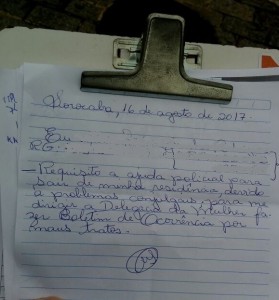 Sorocaba, 16 de agosto de 2017.
Eu
RG:
- Requisito a ajuda policial para
sair de minha residência, devido
a problemas conjugais, para me
dirigir a Delegacia da Mulher fa
zer Boletim de Ocorrência por
maus tratos.